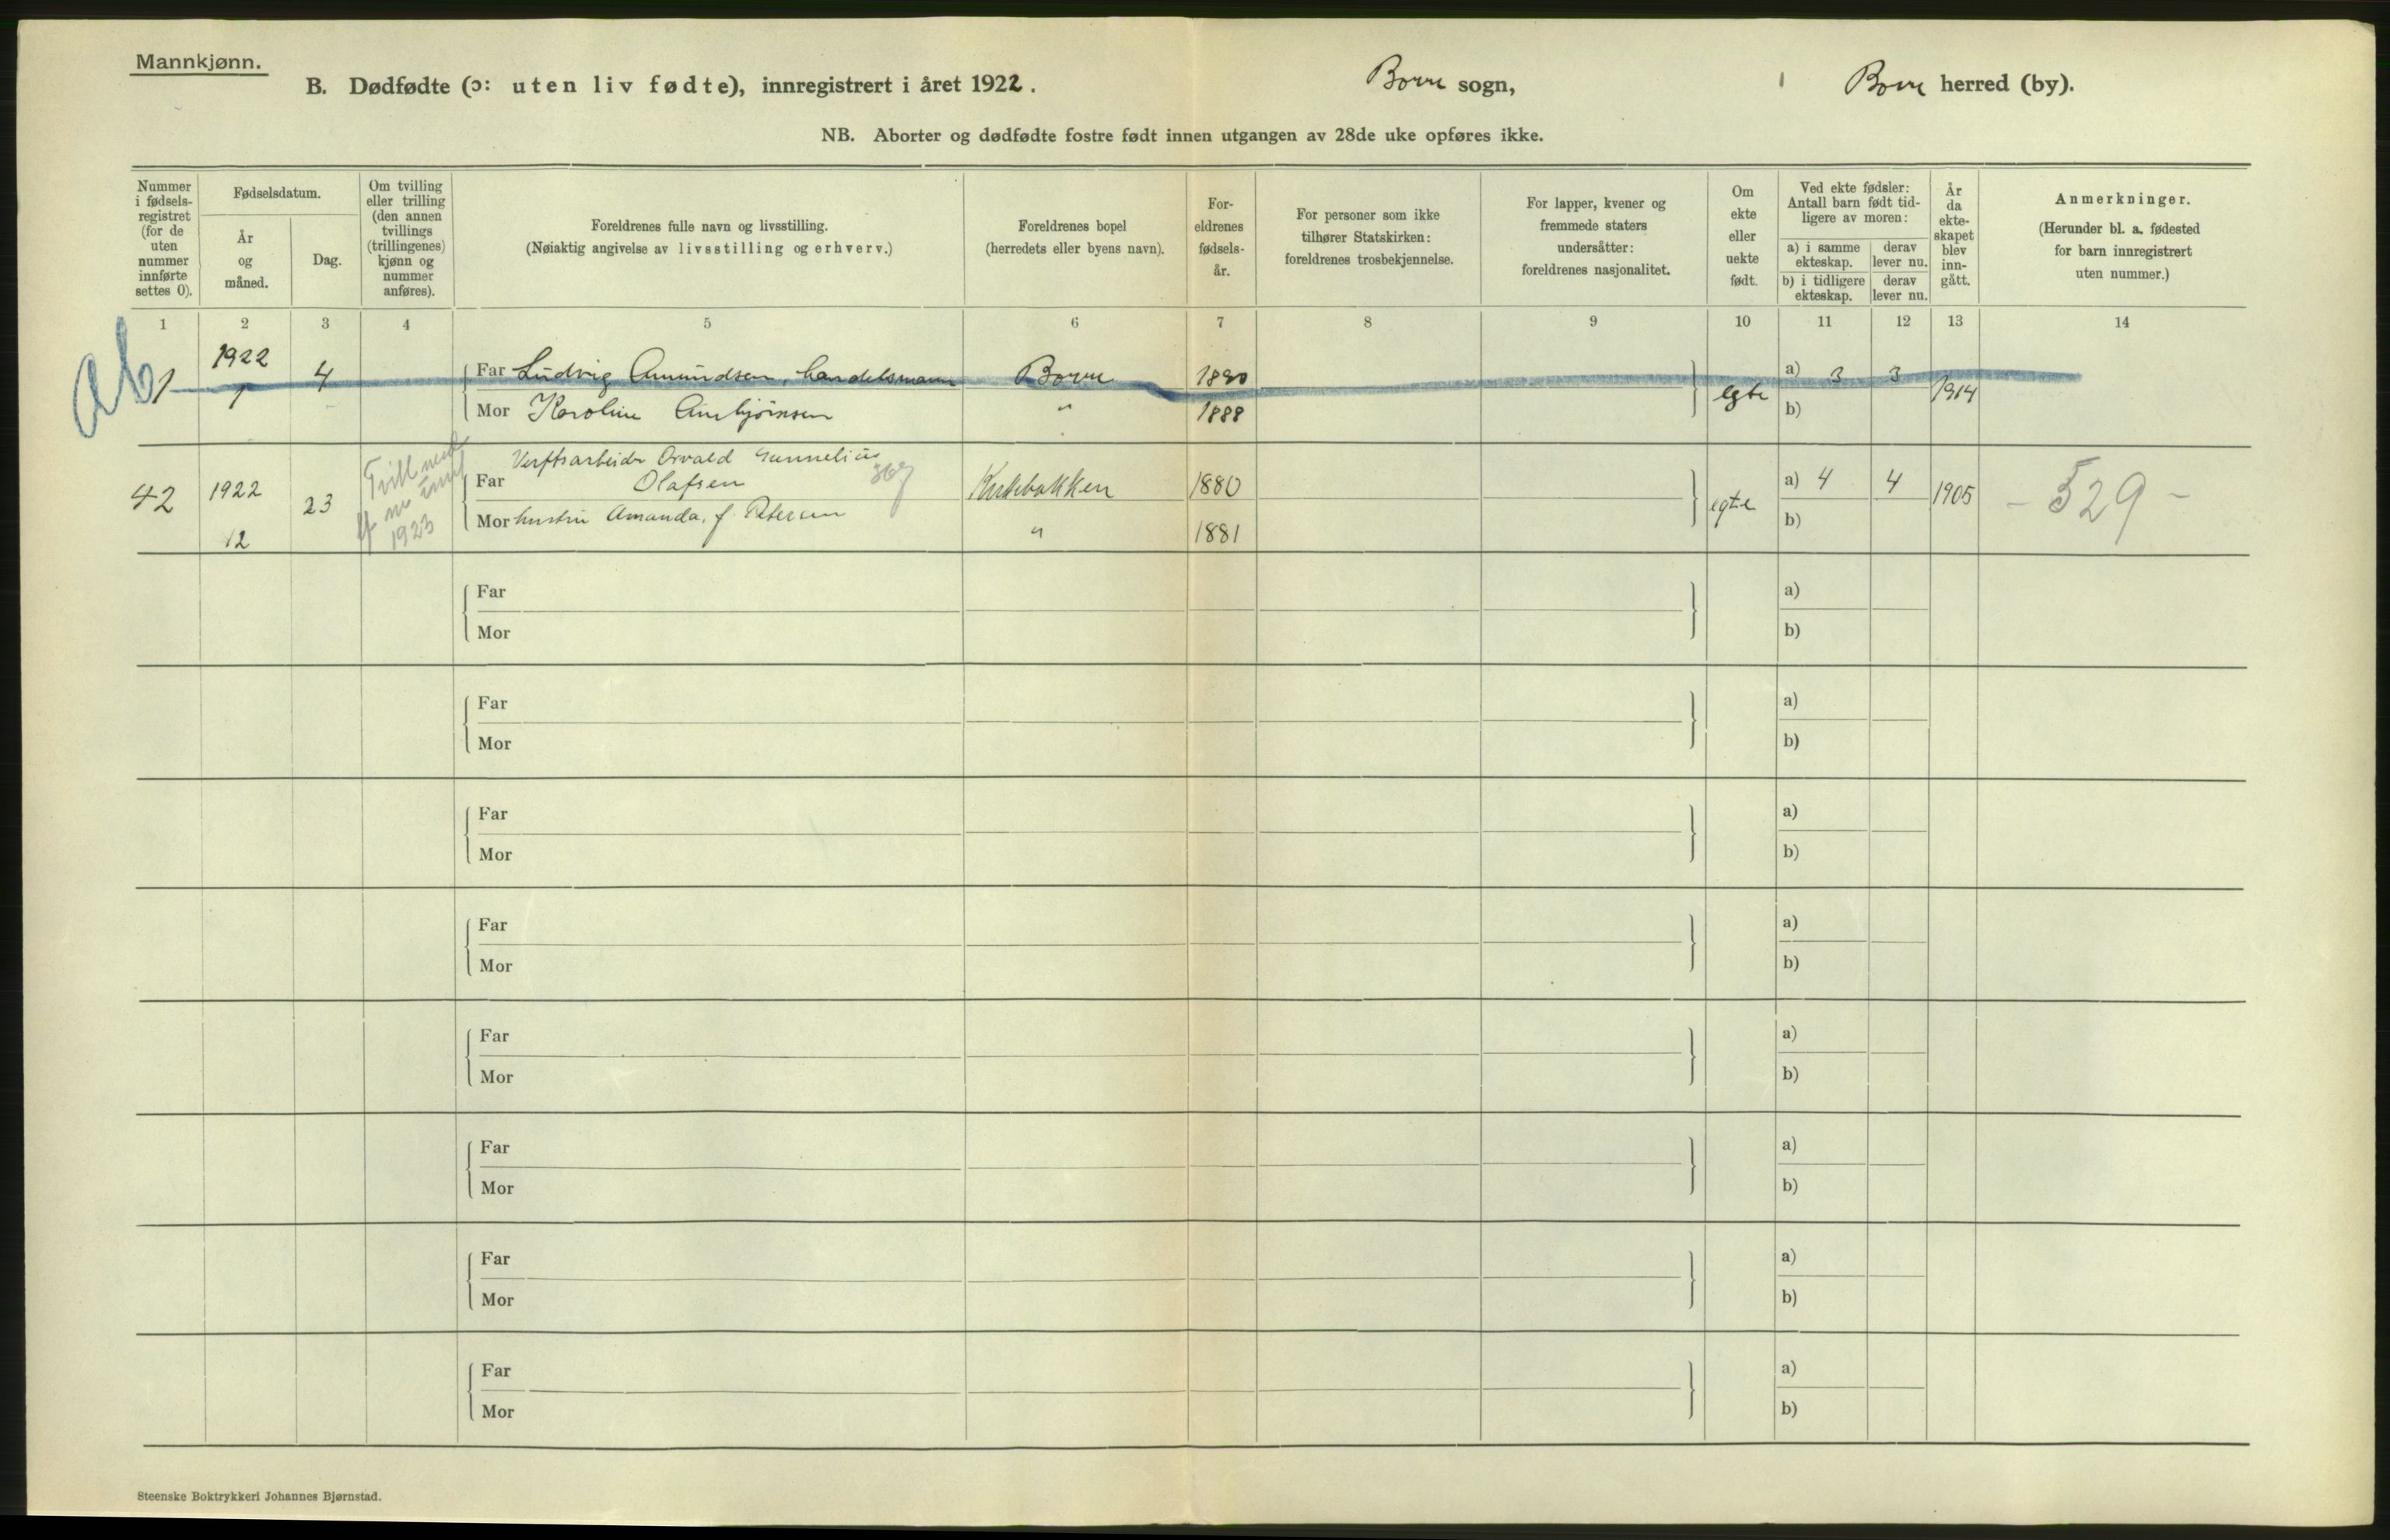 Mannkjønn.
B. Dødfødte (ɔ: uten liv fødte), innregistrert i året 1922.
Borre sogn,
Borre herred (by).
NB. Aborter og dødfødte fostre født innen utgangen av 28de uke opføres ikke.
Nummer i fødsels-registret (for de uten nummer innførte settes 0).
Fødselsdatum.
År og måned.
Dag.
Om tvilling eller trilling (den annen tvillings (trillingenes) kjønn og nummer anføres).
Foreldrenes fulle navn og livsstilling.
(Nøiaktig angivelse av livsstilling og erhverv.)
Foreldrenes bopel
(herredets eller byens navn).
For-eldrenes fødsels-år.
For personer som ikke tilhører Statskirken: foreldrenes trosbekjennelse.
For lapper, kvener og fremmede staters undersåtter: foreldrenes nasjonalitet.
Om ekte eller uekte født.
Ved ekte fødsler: Antall barn født tid-ligere av moren:
a) i samme ekteskap.
derav lever nu.
b) i tidligere ekteskap.
derav lever nu.
År da ekte-skapet blev inn-gått.
Anmerkninger.
(Herunder bl. a. fødested for barn innregistrert uten nummer.)
1 2 3 4 5 6 7 8 9 10 11 12 13 14
ab
1 1922 1 4 Far Ludvig Amundsen, handelsmann Borre 1880 egte a) 3 3 1914
Mor Karoline " 1888 b)
42 1922 12 23
Tvill med
1923
Verftsarbeider Osvald
Far Olafsen Kirkebakken 1880 egte a) 4 4 1905 - 529 -
Mor hustru Amanda, f. Petersen " 1881 b)
Far a)
Mor b)
Far a)
Mor b)
Far a)
Mor b)
Far a)
Mor b)
Far a)
Mor b)
Far a)
Mor b)
Far a)
Mor b)
Far a)
Mor b)
Steenske Boktrykkeri Johannes Bjørnstad.